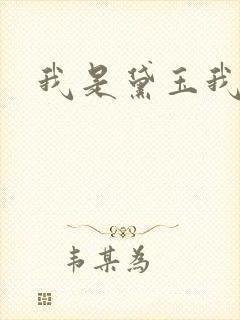 我是黛玉我
韦某为